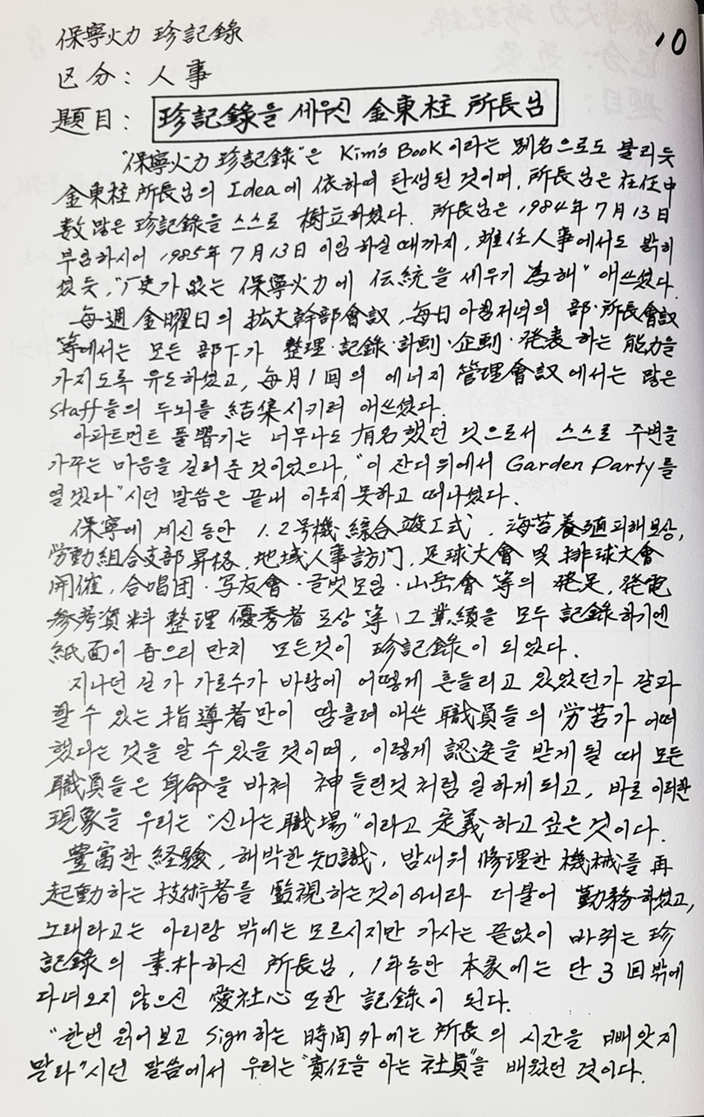 保寧火力 珍記錄
10
区分: 人事
題目: 珍記錄을 세우신 金東柱 所長님
"保寧火力 珍記錄"은 Kim's Book 이라는 別名으로도 불리듯
金東柱 所長님의 Idea에 依하여 탄생된 것이며, 所長님은 在任中
数많은 珍記錄을 스스로 樹立하셨다. 所長님은 1984年 7月 13日
부임하시어 1985年 7月 13日 이임하실 때까지, 離任人事에서도 밝히
셨듯, "厂史가 없는 保寧火力에 伝統을 세우기 為해" 애쓰셨다.
每週 金曜日의 拡大幹部會議, 每日 아침저녁의 部·所長會議
等에서는 모든 部下가 整理·記錄·計劃·企劃·発表하는 能力을
가지도록 유도하셨고, 每月 1回의 에너지 管理會議에서는 많은
staff들의 두뇌를 結集시키려 애쓰셨다.
아파트먼트 풀뽑기는 너무나도 有名했던 것으로서 스스로 주변을
가꾸는 마음을 길러준 것이었으나, "이 잔디위에서 Garden Party를
열겠다"시던 말씀은 끝내 이루지 못하고 떠나셨다.
保寧에 계신 동안 1.2号機 綜合竣工式, 海苔養殖피해보상,
労動組合支部昇格, 地域人事訪門, 足球大會 및 排球大會
開催, 合唱団·写友會·글벗모임·山岳會 等의 発足, 発電
参考資料 整理 優秀者 표상 等 그 業績을 모두 記錄하기엔
紙面이 좁으리 만치 모든것이 珍記錄이 되었다.
지나던 길가 가로수가 바람에 어떻게 흔들리고 있었던가 갈파
할 수 있는 指導者만이 땀흘려 애쓴 職員들의 労苦가 어떠
했다는 것을 알 수 있을 것이며, 이렇게 認定을 받게 될 때 모든
職員들은 身命을 바쳐 神들린것처럼 일하게 되고, 바로 이러한
現象을 우리는 "신나는 職場"이라고 定義하고 싶은 것이다.
豊富한 経験, 해박한 知識, 밤새워 修理한 機械를 再
起動하는 技術者를 監視하는것이 아니라 더불어 勤務하셨고,
노래라고는 아리랑 밖에는 모르시지만 가사는 끝없이 바뀌는 珍
記錄의 素朴하신 所長님, 1年동안 本家에는 단 3回밖에
다녀오지 않으신 愛社心 또한 記錄이 된다.
"한번 읽어보고 Sign하는 時間 外에는 所長의 시간을 빼앗지
말라"시던 말씀에서 우리는 "責任을 아는 社員"을 배웠던 것이다.